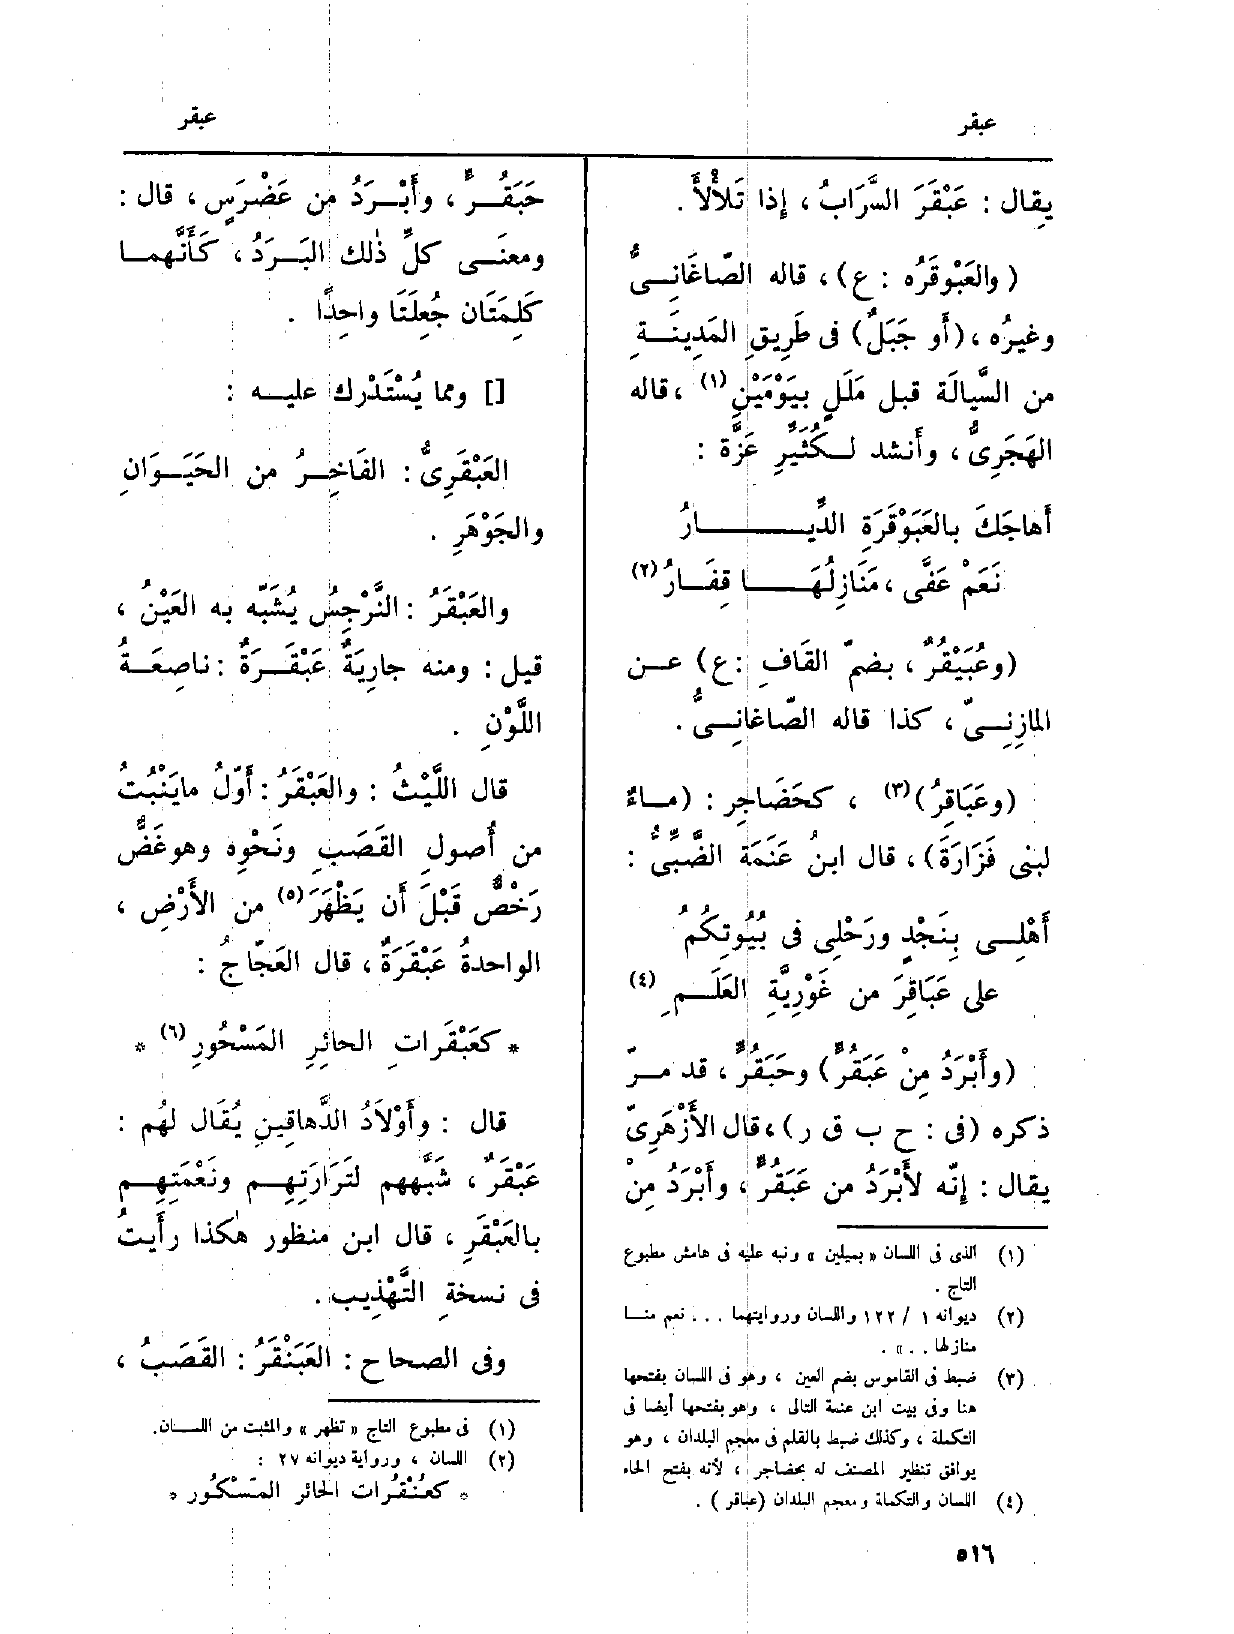 عبقر
عبقر
يقال : عَبْقَرَ السَّرَابُ ، إذا تَلأْلأَ .
( والعَبْوقَرُه : ع ) ، قاله الصّاغَانِـىُّ
وغيرُه ، ( أو جَبَلٌ ) فى طَرِيقِ المَدِينَـةِ
من السَّيالَة قبل مَلَلٍ بيَوْمَيْنِ (١) ، قاله
الهَجَرِىُّ ، وأنشد لـكُثَيِّرِ عَزَّة :
أهاجَكَ بالعَبَوْقَرَةِ الدِّيـــارُ
نَعَمْ عَفَّى ، مَنَازِلُهَــا قِفَـارُ (٢)
( وعُبَيْقُرٌ ، بضمّ القَافِ : ع ) عـن
المازِنِـىّ ، كذا قاله الصّاغانِـىُّ .
( وعَبَاقِرُ ) (٣) ، كحَضَاجِر : ( مـاءٌ
لبنى فَزَارَةَ ) ، قال ابنُ عَنَمَةَ الضَّبِّىُّ :
أَهْلِـى بِنَجْدٍ ورَحْلِى فى بُيُوتِكُمُ
على عَبَاقِرَ من غَوْرِيَّةِ العَلَـمِ (٤)
( وأَبْرَدُ مِنْ عَبَقُرٍّ ) وحَبَقُرٍّ ، قد مـرّ
ذكره ( فى : ح ب ق ر ) ، قال الأَزْهَرِىّ
يقال : إنّه لأَبْرَدُ من عَبَقُرٍّ ، وأَبْرَدُ مِنْ
(١) الذى فى اللسان « بميلين » ونبه عليه فى هامش مطبوع
التاج .
(٢) ديوانه ١ / ١٢٢ واللسان وروايتهما . . . نعم منـا
منازلها . . » .
(٣) ضبط فى القاموس بضم العين ، وهو فى اللسان بفتحها
هنا وفى بيت ابن عنمة التالى ، وهو بفتحها أيضا فى
التكملة ، وكذلك ضبط بالقلم فى معجم البلدان ، وهو
يوافق تنظير المصنف له بحضاجر ، لأنه بفتح الحاء
(٤) اللسان والتكملة ومعجم البلدان ( عباقر ) .
حَبَقُـرٍّ ، وأَبْـرَدُ من عَضْرَسٍ ، قال :
ومعنَـى كلِّ ذٰلك البَـرَدُ ، كَأَنَّهمـا
كَلِمَتَان جُعِلَتَا واحِدًا .
[] ومما يُسْتَدْرك عليـه :
العَبْقَرِىُّ : الفَاخِـرُ من الحَيَـوَانِ
والجَوْهَرِ .
والعَبْقَرُ : النَّرْجِسُ يُشَبَّه به العَيْنُ ،
قيل : ومنه جارِيَةٌ عَبْقَـرَةٌ : ناصِعَـةُ
اللَّوْنِ .
قال اللَّيْثُ : والعَبْقَرُ : أَوّلُ مايَنْبُتُ
من أُصولِ القَصَبِ ونَحْوِه وهو غَضٌّ
رَخْصٌ قَبْلَ أن يَظْهَرَ (٥) من الأَرْضِ ،
الواحدةُ عَبْقَرَةٌ ، قال العَجّاجُ :
* كعَبْقَرات الحائِرِ المَسْحُورِ (٦) *
قال : وأَوْلاَدُ الدَّهاقِينِ يُقَال لهُم :
عَبْقَرٌ ، شَبَّههم لتَرَارَتِهِـم ونَعْمَتِهِـم
بالعَبْقَرِ ، قال ابن منظور هٰكذا رأَيتُ
فى نسخةِ التَّهْذِيب .
وفى الصحاح : العَبَنْقَرُ : القَصَبُ ،
(١) فى مطبوع التاج « تظهر » والمثبت من اللسـان.
(٢) اللسان ، ورواية ديوانه ٢٧ :
* كعُنْقُرات الحائر المَسْكور *
٥١٦